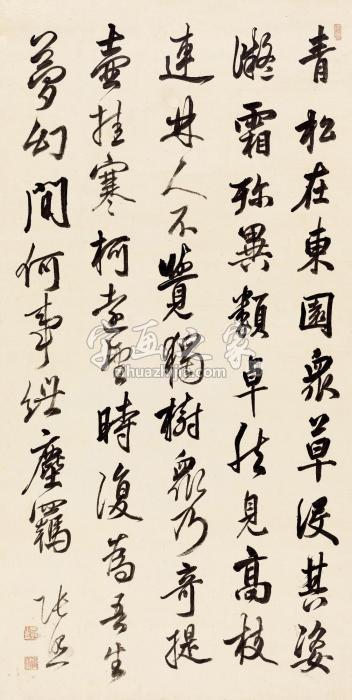 青松在東園衆草沒其姿
凝霜殄異類卓然見高枝
連林人不覺獨樹衆乃奇提
壺挂寒柯遠望時復為吾生
夢幻間何事紲塵羈
張照
字画之家
zhuazhijia.com